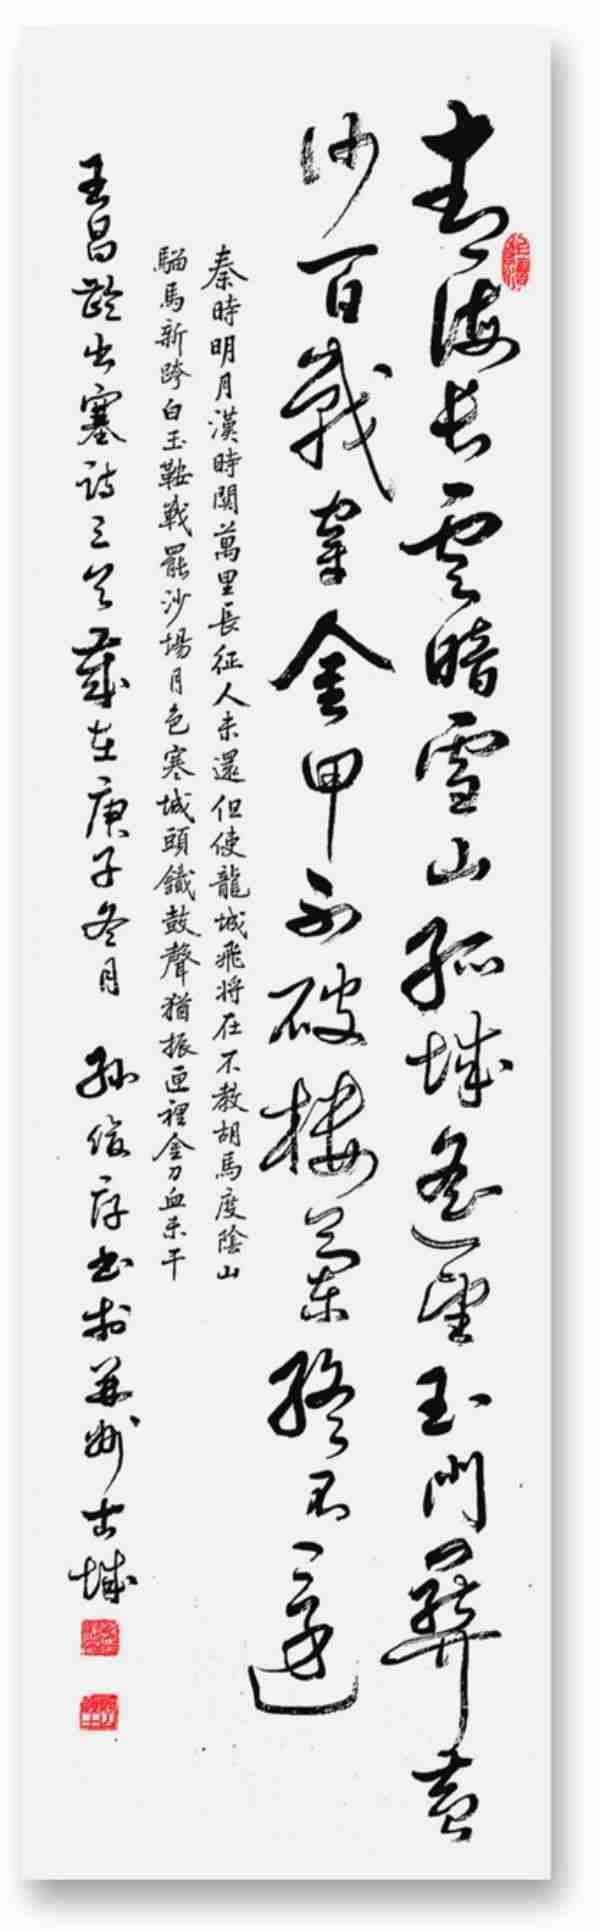 青海长雲暗雪山孤城遥望玉門關黄
沙百戰穿金甲不破樓蘭終不還
秦時明月漢時關萬里長征人未還但使龍城飛將在不教胡馬度陰山
騮馬新跨白玉鞍戰罷沙場月色寒城頭鐵鼓聲猶振匣裡金刀血未干
王昌齡出塞詩三首歲在庚子冬月 孫俊存书於并州古城